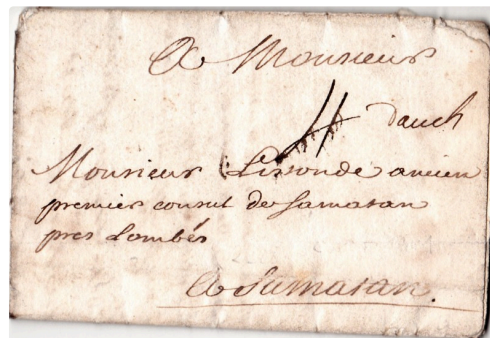 A Monsieur
4 dauch
Monsieur Lironde ancien
premier consul de Samatan
pres Lombés
A Samatan.